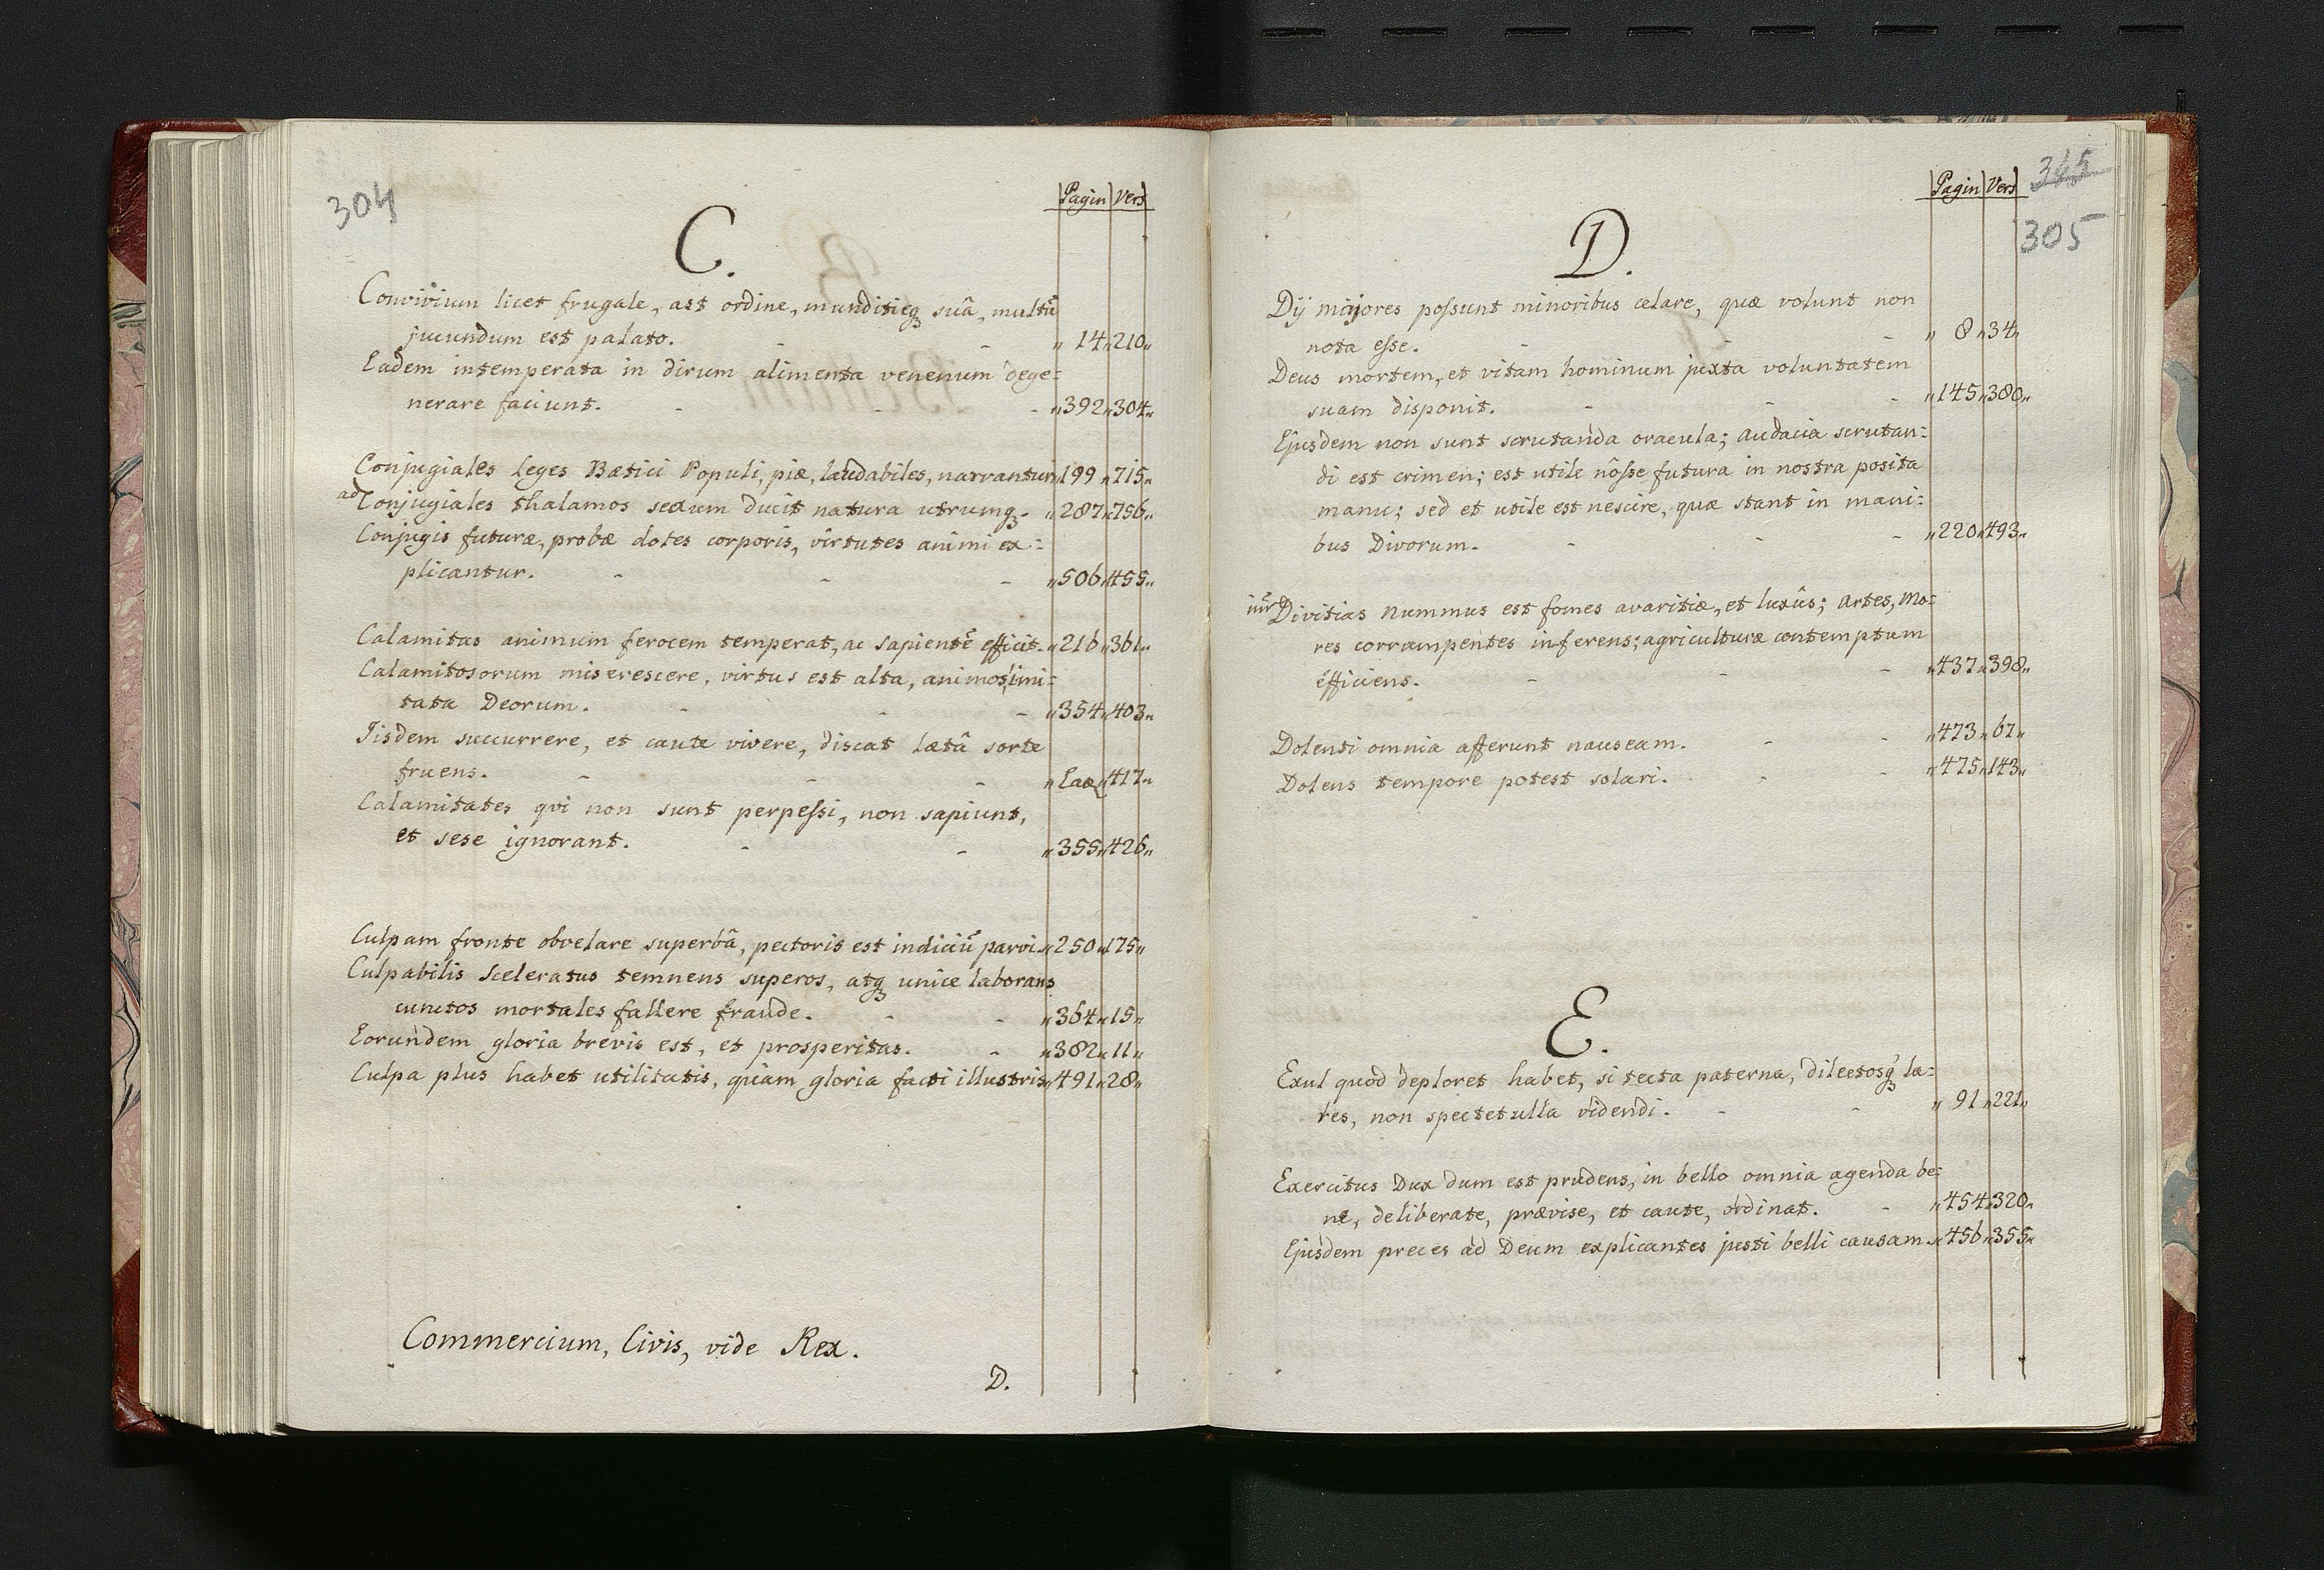 304
Pagin Vers
C.
Convivium licet frugale, ast ordine, munditieq₃ suâ, multũ
jucundum est palato. - - „ 14 „ 210 „
Eadem intemperata in dirum alimenta venenum dege:
nerare faciunt. - - - „ 392 „ 304 „
Conjugiales leges Bætici Populi, piæ, laudabiles, narrantur „ 199 „ 715 „
ad Conjugiales thalamos sexum ducit natura utrumq₃. „ 287 „ 756 „
Conjugis futuræ, probæ dotes corporis, virtutes animi ex:
plicantur. - - - „ 506 „ 455 „
Calamitas animum ferocem temperat, ac sapientẽ efficit. „ 216 „ 361 „
Calamitosorum miserescere, virtus est alta, animos imi:
tata Deorum. - - - „ 354 „ 403 „
Jisdem succurrere, et caute vivere, discat lætâ sorte
fruens. - - - „ Eaẽ „ 417 „
Calamitates qvi non sunt perpeſsi, non sapiunt,
et sese ignorant. - - „ 355 „ 426 „
Culpam fronte obvelare superbâ, pectoris est indiciũ parvi. „ 250 „ 175 „
Culpabilis sceleratus temnens superos, atq₃ unice laborans
cunctos mortales fallere fraude. - - „ 364 „ 15 „
Eorundem gloria brevis est, et prosperitas. - „ 382 „ 11 „
Culpa plus habet utilitatis, quam gloria facti illustris „ 491 „ 28 „
Commercium, Civis, vide Rex.
D.
Pagin Vers
305
D.
Dij majores poſsunt minoribus celare, quæ volunt non
nota eſse. - - - „ 8 „ 34 „
Deus mortem, et vitam hominum juxta voluntatem
suam disponit. - - - „ 145 „ 380 „
Ejusdem non sunt scrutanda oracula; audacia scrutan:
di est crimen; est utile nôſse futura in nostra posita
manu; sed et utile est nescire, quæ stant in mani:
bus Divorum. - - - „ 220 „ 493 „
Divitias nummus est fomes avaritiæ, et luxûs; artes, mo:
res corrumpentes inferens; agriculturæ contemptum
efficiens. - - - „ 437 „ 398 „
Dolenti omnia afferunt nauseam. - - „ 473 „ 67 „
Dolens tempore potest solari. - - „ 475 „ 143 „
E.
Exul quod deploret habet, si tecta paterna, dilectosq₃ la:
res, non spectet ulla videndi. - - „ 91 „ 221 „
Exercitus Dux dum est prudens, in bello omnia agenda be:
ne, deliberate, prævise, et caute, ordinat. - „ 454 „ 320 „
Ejusdem preces ad Deum explicantes justi belli causam. „ 456 „ 355 „